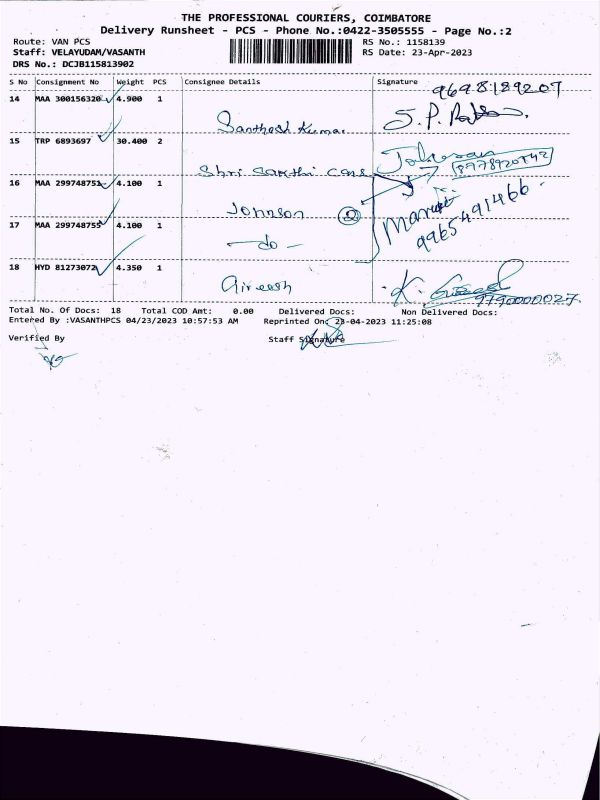 THE PROFESSIONAL COURIERS, COIMBATORE
Delivery Runsheet - PCS - Phone No.:0422-3505555 - Page No.:2
Route: VAN PCS RS No.: 1158139
Staff: VELAYUDAM/VASANTH RS Date: 23-Apr-2023
DRS No.: DCJB115813902
S No Consignment No Weight PCS Consignee Details Signature
9698189207
14 MAA 300156320 4.900 1 Santhosh Kumar S.P.
15 TRP 6893697 30.400 2 Shri Sakthi Cons
16 MAA 299748752 4.100 1 Johnson 2
17 MAA 299748755 4.100 1 - do - 9965491466
18 HYD 81273072 4.350 1 Gireesh K.
9790000027
Total No. Of Docs: 18 Total COD Amt: 0.00 Delivered Docs: Non Delivered Docs:
Entered By :VASANTHPCS 04/23/2023 10:57:53 AM Reprinted On: 23-04-2023 11:25:08
Verified By Staff Signature